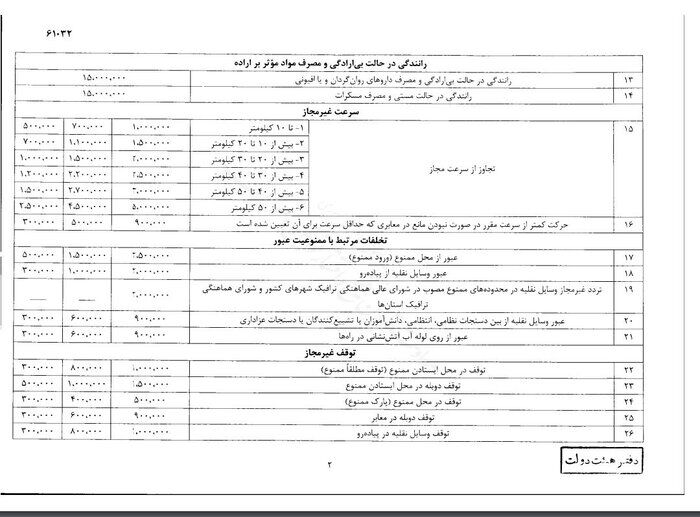 ۶۱۰۳۲
رانندگی در حالت بی‌ارادگی و مصرف مواد مؤثر بر اراده
۱۳ رانندگی در حالت بی‌ارادگی و مصرف داروهای روان‌گردان و یا افیونی ۱۵،۰۰۰،۰۰۰
۱۴ رانندگی در حالت مستی و مصرف مسکرات ۱۵،۰۰۰،۰۰۰
سرعت غیرمجاز
۱۵ تجاوز از سرعت مجاز
۱- تا ۱۰ کیلومتر ۱،۰۰۰،۰۰۰ ۷۰۰،۰۰۰ ۵۰۰،۰۰۰
۲- بیش از ۱۰ تا ۲۰ کیلومتر ۱،۵۰۰،۰۰۰ ۱،۱۰۰،۰۰۰ ۷۰۰،۰۰۰
۳- بیش از ۲۰ تا ۳۰ کیلومتر ۲،۰۰۰،۰۰۰ ۱،۵۰۰،۰۰۰ ۱،۰۰۰،۰۰۰
۴- بیش از ۳۰ تا ۴۰ کیلومتر ۲،۵۰۰،۰۰۰ ۲،۲۰۰،۰۰۰ ۱،۲۰۰،۰۰۰
۵- بیش از ۴۰ تا ۵۰ کیلومتر ۳،۰۰۰،۰۰۰ ۲،۷۰۰،۰۰۰ ۱،۵۰۰،۰۰۰
۶- بیش از ۵۰ کیلومتر ۵،۰۰۰،۰۰۰ ۴،۵۰۰،۰۰۰ ۲،۵۰۰،۰۰۰
۱۶ حرکت کمتر از سرعت مقرر در صورت نبودن مانع در معابری که حداقل سرعت برای آن تعیین شده است ۹۰۰،۰۰۰ ۵۰۰،۰۰۰ ۳۰۰،۰۰۰
تخلفات مرتبط با ممنوعیت عبور
۱۷ عبور از محل ممنوع (ورود ممنوع) ۲،۵۰۰،۰۰۰ ۱،۵۰۰،۰۰۰ ۵۰۰،۰۰۰
۱۸ عبور وسایل نقلیه از پیاده‌رو ۲،۰۰۰،۰۰۰ ۱،۰۰۰،۰۰۰ ۳۰۰،۰۰۰
۱۹ تردد غیرمجاز وسایل نقلیه در محدوده‌های ممنوع مصوب در شورای عالی هماهنگی ترافیک شهرهای کشور و شورای هماهنگی ۲،۰۰۰،۰۰۰ — —
ترافیک استان‌ها
۲۰ عبور وسایل نقلیه از بین دستجات نظامی، انتظامی، دانش‌آموزان یا تشییع‌کنندگان یا دستجات عزاداری ۹۰۰،۰۰۰ ۶۰۰،۰۰۰ ۳۰۰،۰۰۰
۲۱ عبور از روی لوله آب آتش‌نشانی در راه‌ها ۹۰۰،۰۰۰ ۶۰۰،۰۰۰ ۳۰۰،۰۰۰
توقف غیرمجاز
۲۲ توقف در محل ایستادن ممنوع (توقف مطلقاً ممنوع) ۱،۰۰۰،۰۰۰ ۸۰۰،۰۰۰ ۳۰۰،۰۰۰
۲۳ توقف دوبله در محل ایستادن ممنوع ۱،۵۰۰،۰۰۰ ۱،۰۰۰،۰۰۰ ۵۰۰،۰۰۰
۲۴ توقف در محل ممنوع (پارک ممنوع) ۵۰۰،۰۰۰ ۴۰۰،۰۰۰ ۳۰۰،۰۰۰
۲۵ توقف دوبله در معابر ۹۰۰،۰۰۰ ۶۰۰،۰۰۰ ۳۰۰،۰۰۰
۲۶ توقف وسایل نقلیه در پیاده‌رو ۱،۰۰۰،۰۰۰ ۸۰۰،۰۰۰ ۳۰۰،۰۰۰
۲
دفتر هیئت دولت